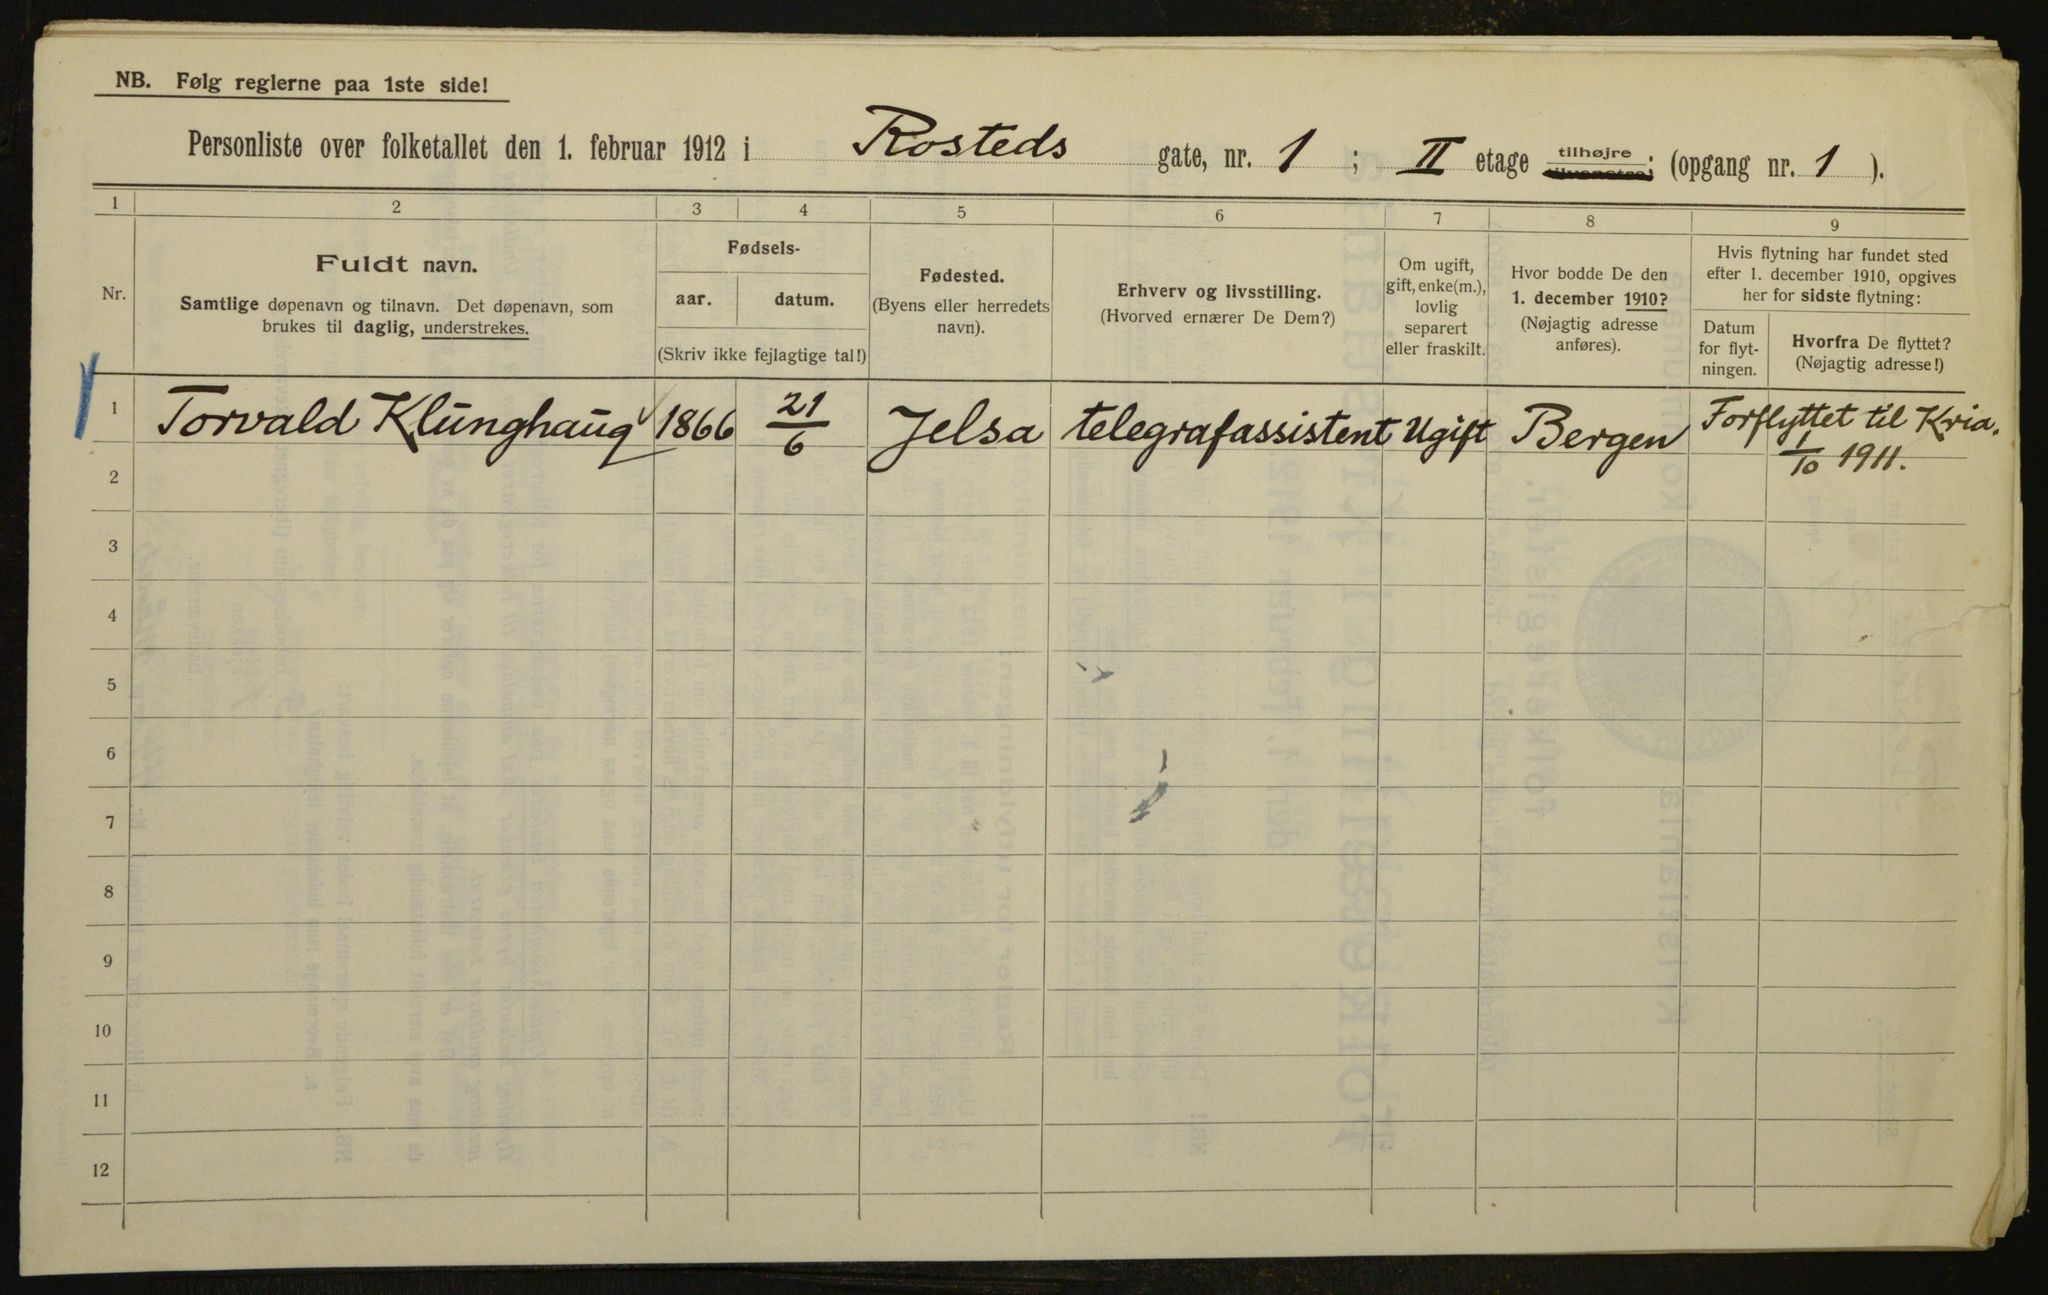 NB. Følg reglerne paa 1ste side!
Personliste over folketallet den 1. februar 1912 i Rosteds gate, nr. 1 ; II etage tilhøjre tilvenstre; (opgang nr. 1 ).
1 2 3 4 5 6 7 8 9
Nr.
Fuldt navn.
Samtlige døpenavn og tilnavn. Det døpenavn, som
brukes til daglig, understrekes.
Fødsels-
aar. datum.
(Skriv ikke fejlagtige tal!)
Fødested.
(Byens eller herredets
navn).
Erhverv og livsstilling.
(Hvorved ernærer De Dem?)
Om ugift,
gift, enke(m.),
lovlig
separert
eller fraskilt.
Hvor bodde De den
1. december 1910?
(Nøjagtig adresse
anføres).
Hvis flytning har fundet sted
efter 1. december 1910, opgives
her for sidste flytning:
Datum
for flyt-
ningen.
Hvorfra De flyttet?
(Nøjagtig adresse!)
1 Torvald Klunghaug 1866 21/6 Jelsa telegrafassistent Ugift Bergen Forflyttet til Kria.
1/10 1911.
2
3
4
5
6
7
8
9
10
11
12